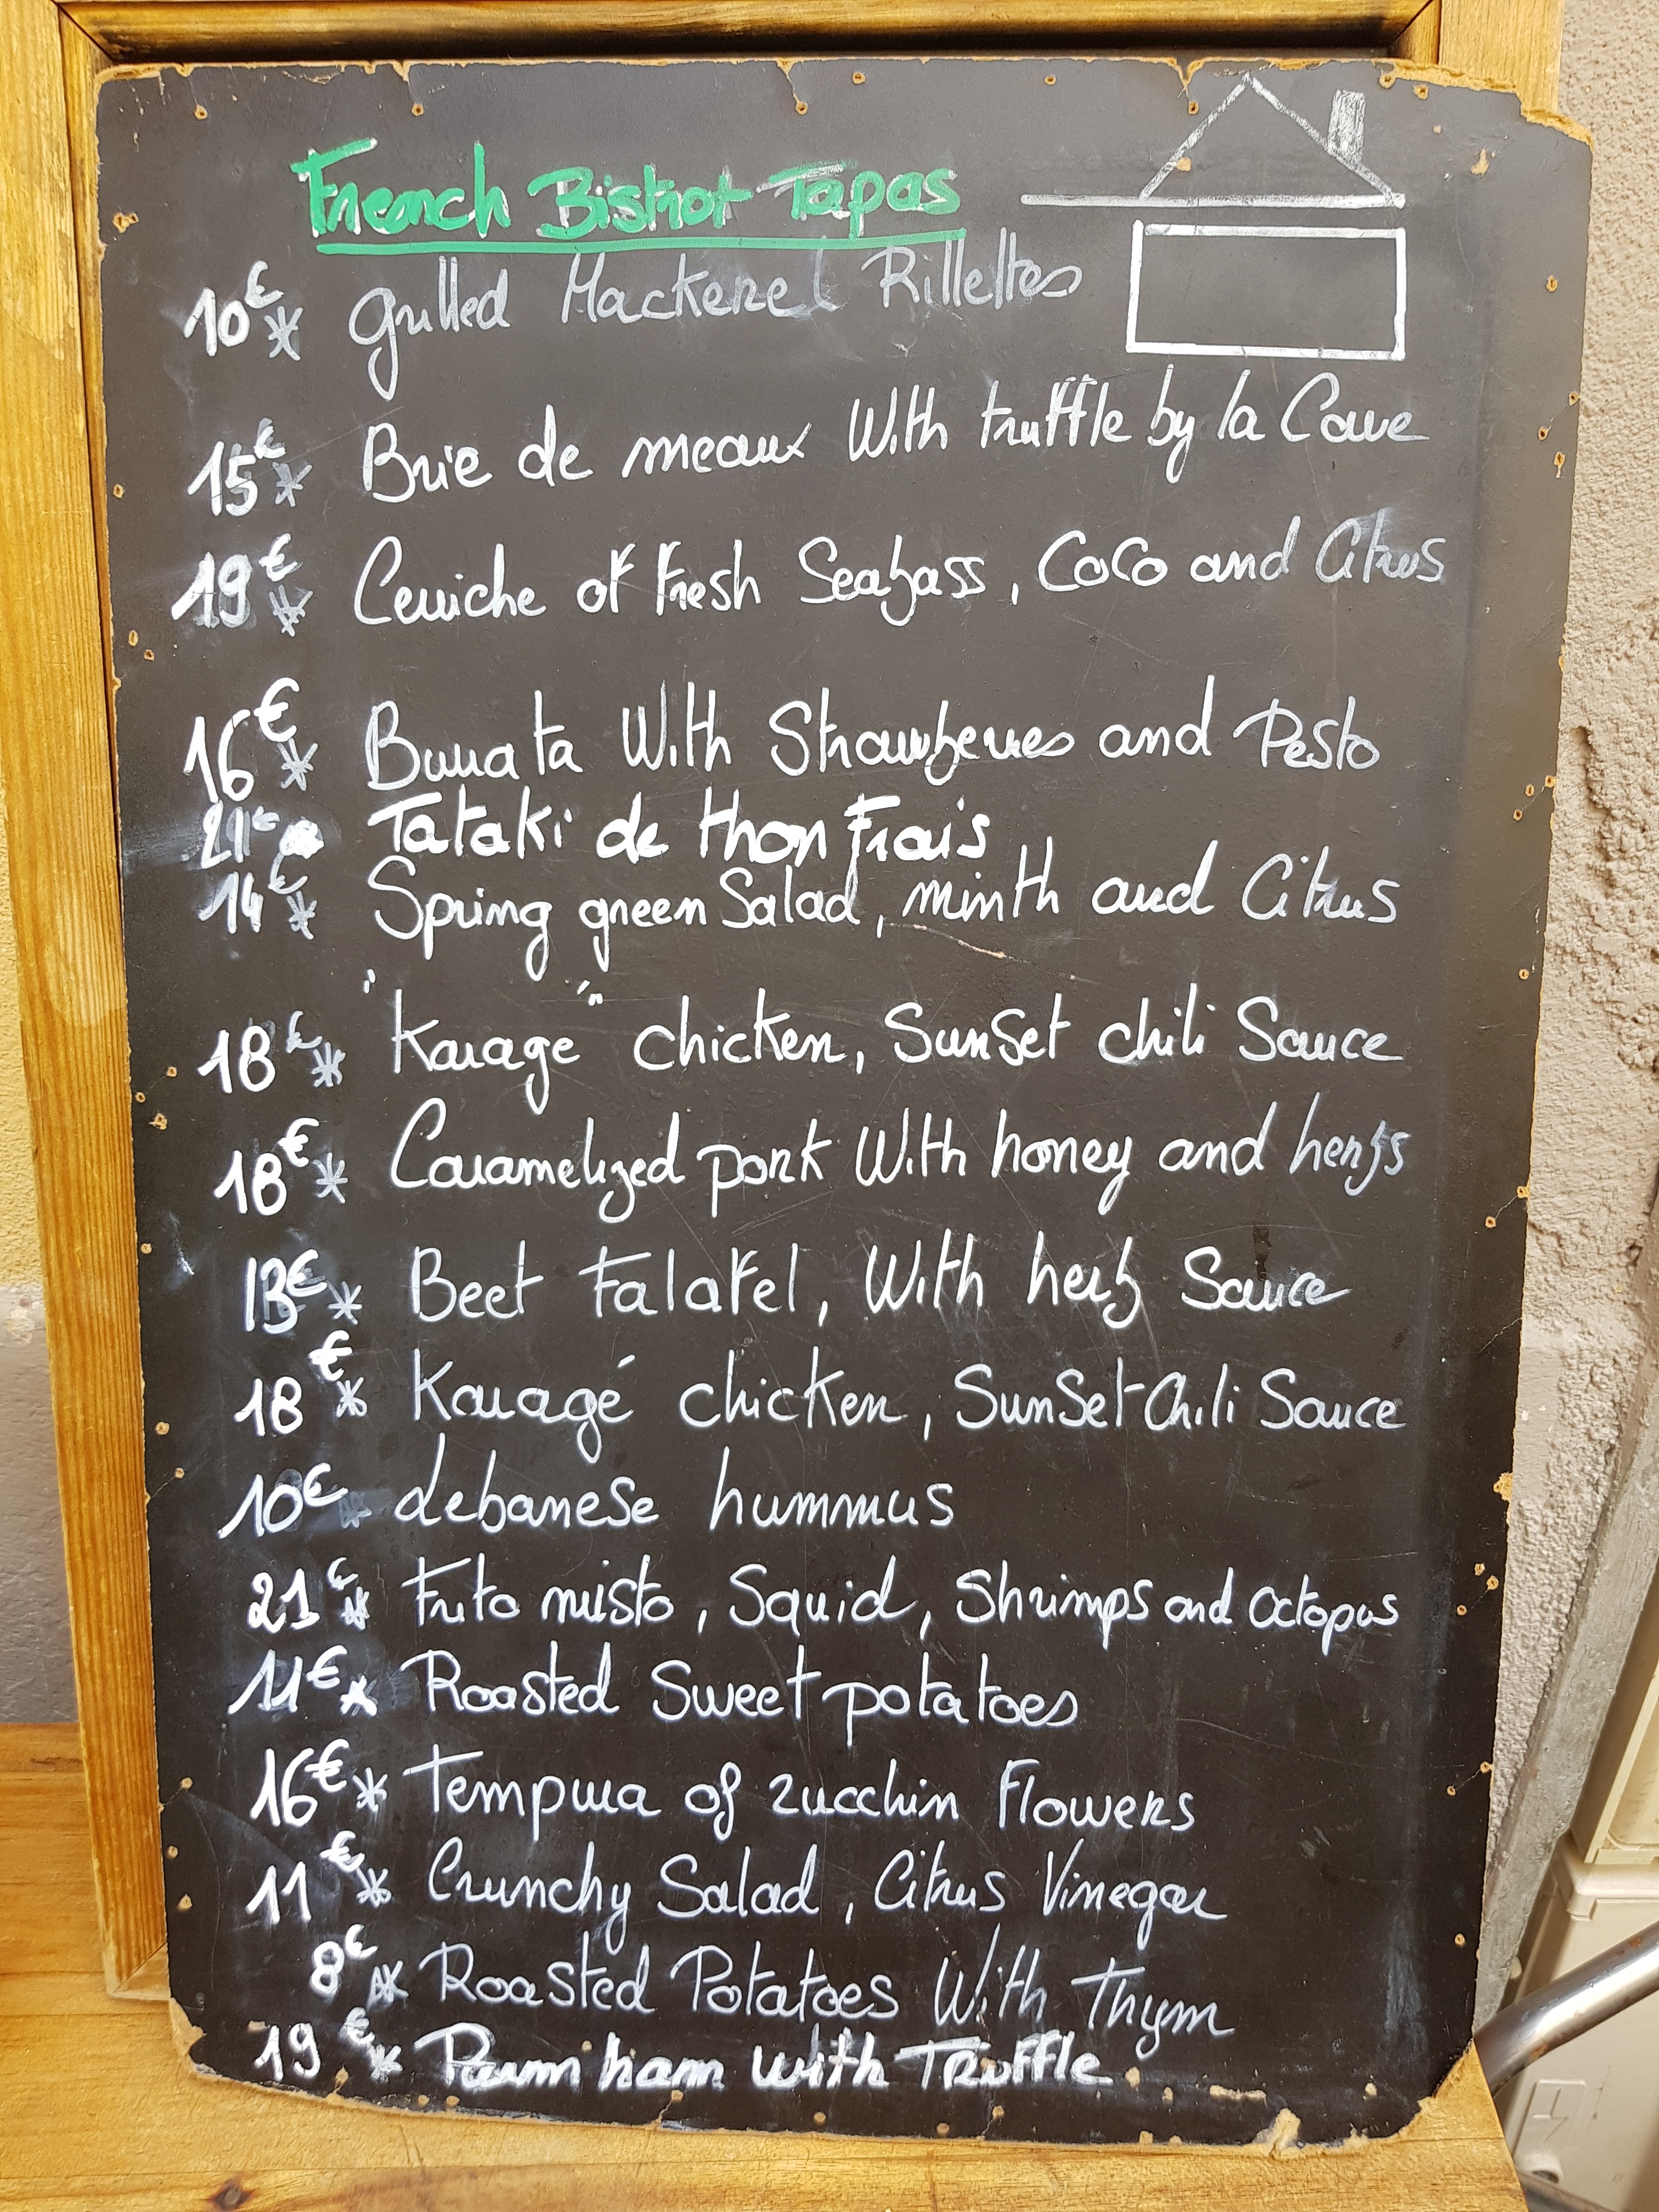 French Bistrot Tapas
10€ * Grilled Mackerel Rillettes
15€ * Brie de meaux With truffle by la Cave
19€ * Ceviche of Fresh Seabass, Coco and Citrus
16€ * Burrata With Strawberries and Pesto
21€ Tataki de thon Frais
14€ * Spring green Salad, minth and Citrus
18€ * "Karage" chicken, Sunset chili Sauce
18€ * Caramelized pork With honey and herbs
13€ * Beet Falafel, With herb Sauce
18€ * Karagé chicken, SunSet Chili Sauce
10€ * Lebanese hummus
21€ * Frito misto, Squid, Shrimps and octopus
11€ * Roasted Sweet potatoes
16€ * Tempura of zucchin Flowers
11€ * Crunchy Salad, Citrus Vinegar
8€ * Roasted Potatoes With Thym
19€ * Parm ham with Truffle